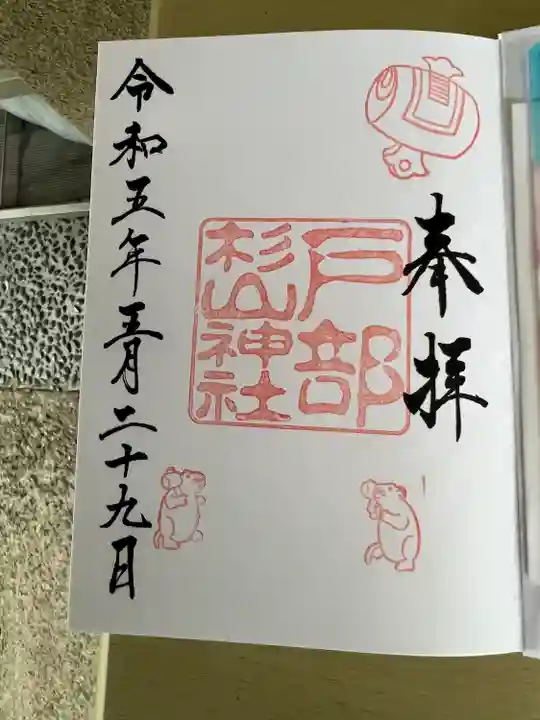 奉拝
戸部
杉山神社
令和五年五月二十九日